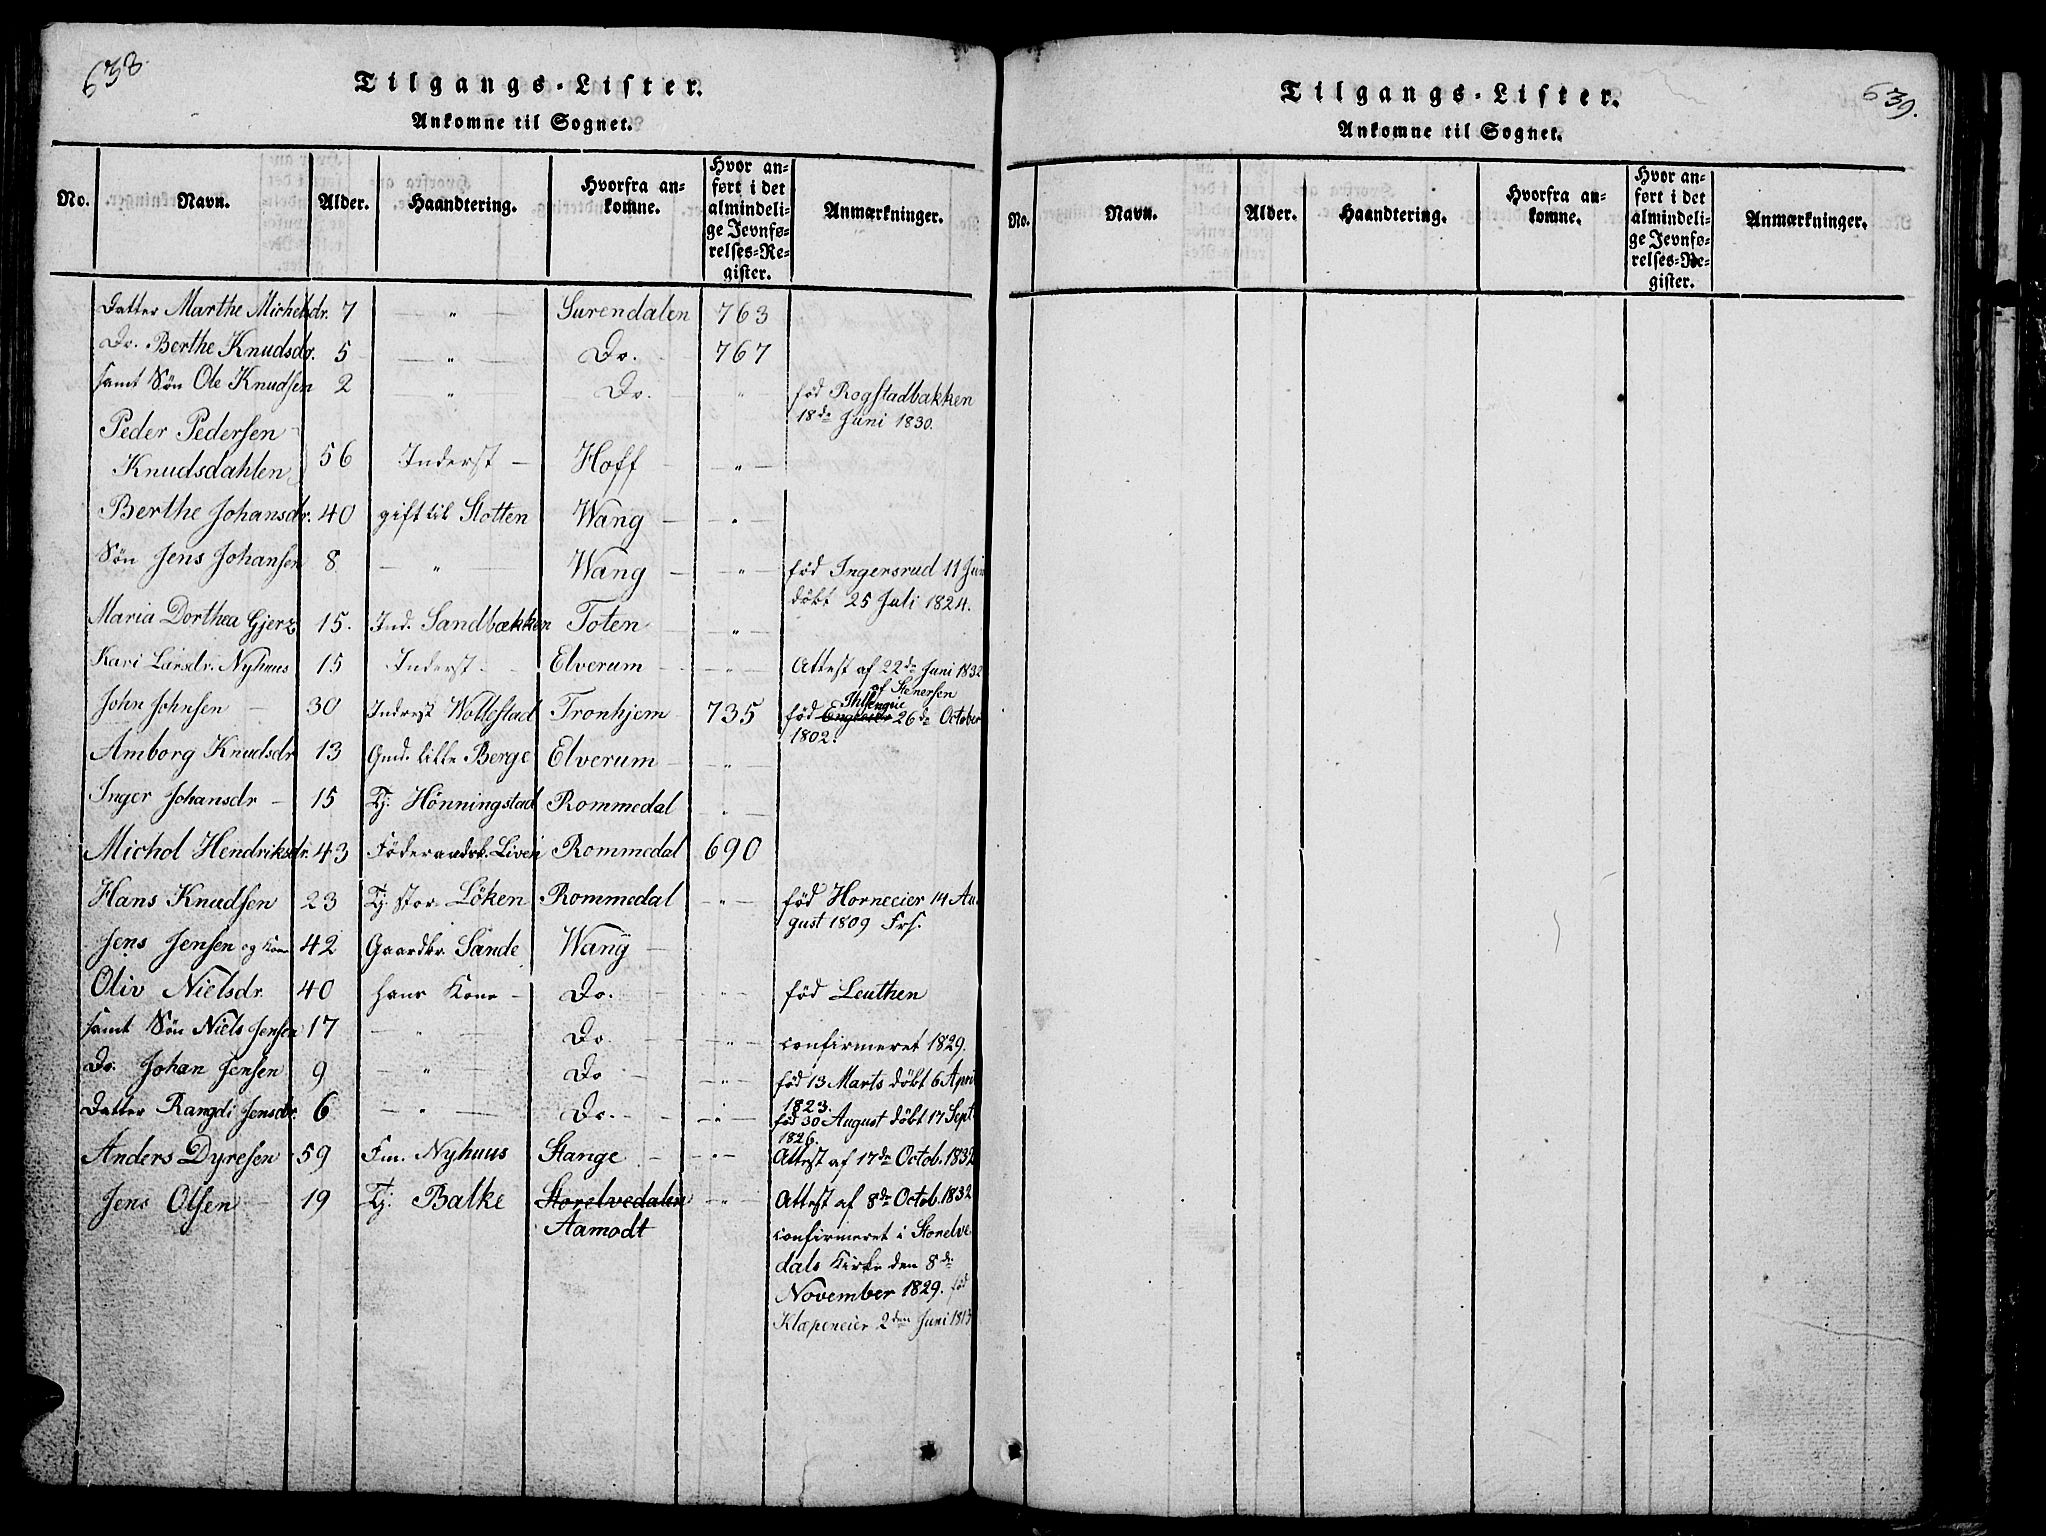 638.
Tilgangs-Lister.
Ankomne til Sognet.
No. Navn. Alder. Haandtering. Hvorfra ankomne. Hvor anført i det almindelige Jevnførelses-Register. Anmærkninger.
Datter Marthe Michelsdr. 7 — " — Surendalen 763
Do. Berthe Knudsdr. 5 — " — Do. 767
samt Søn Ole Knudsen 2 " Do. " föd Rogstadbakken
18de Juni 1830.
Peder Pedersen
Knudsdahlen 56 Inderst — Hoff — — " —
Berthe Johansdr. 40 gift til Slotten Wang — — " —
Søn Jens Johansen 8 — " — Wang — — " — föd Ingersrud 11 Juni
döbt 25 Juli 1824.
Maria Dorthea Gjerz 15. Ind. Sandbækken Toten — — " —
Kari Larsdr. Nyhuus 15 Inderst — Elverum — — " — Attest af 22de Juni 1832
af Stenersen
John Johnsen — 30 Inderst Wollestad Tronhjem 735 föd 26de October
1802.
Amborg Knudsdr 13 Gmd. lille Berge Elverum — — " —
Inger Johansdr — 15 Tj. Hönningstad Rommedal — " —
Michol Hendriksdr. 43 Föderaadsk. Liven Rommedal 690
Hans Knudsen 23 Tj. stor Löken Rommedal — " — föd Horneeier 14 Au-
gust 1809 Frs.
Jens Jensen og Kone 42 Gaardbr. Sande Wang —
Oliv Nielsdr. 40 hans Kone — Do. — " — föd Leuthen
samt Søn Niels Jensen 17 — " — Do. — — " — confirmeret 1829.
Do. Johan Jensen 9 — " — Do — — " — föd 13 Marts döbt 6 April
1823.
Datter Rangdi Jensdr. 6 — " — Do. — — " — föd 30 August döbt 17 Sept.
1826.
Anders Dyresen 59 Fm. Nyhuus Stange — — " — Attest af 17de Octob. 1832
Jens Olsen — 19 Tj. Balke Storelvedalen — " — Attest af 8de Octob. 1832
Aamodt confirmeret i Storelve
dals Kirke den 8de
November 1829. föd
Klapeneier 2den Juni 1813
639.
Tilgangs-Lister.
Ankomne til Sognet.
No. Navn. Alder. Haandtering. Hvorfra ankomne. Hvor anført i det almindelige Jevnførelses-Register. Anmærkninger.